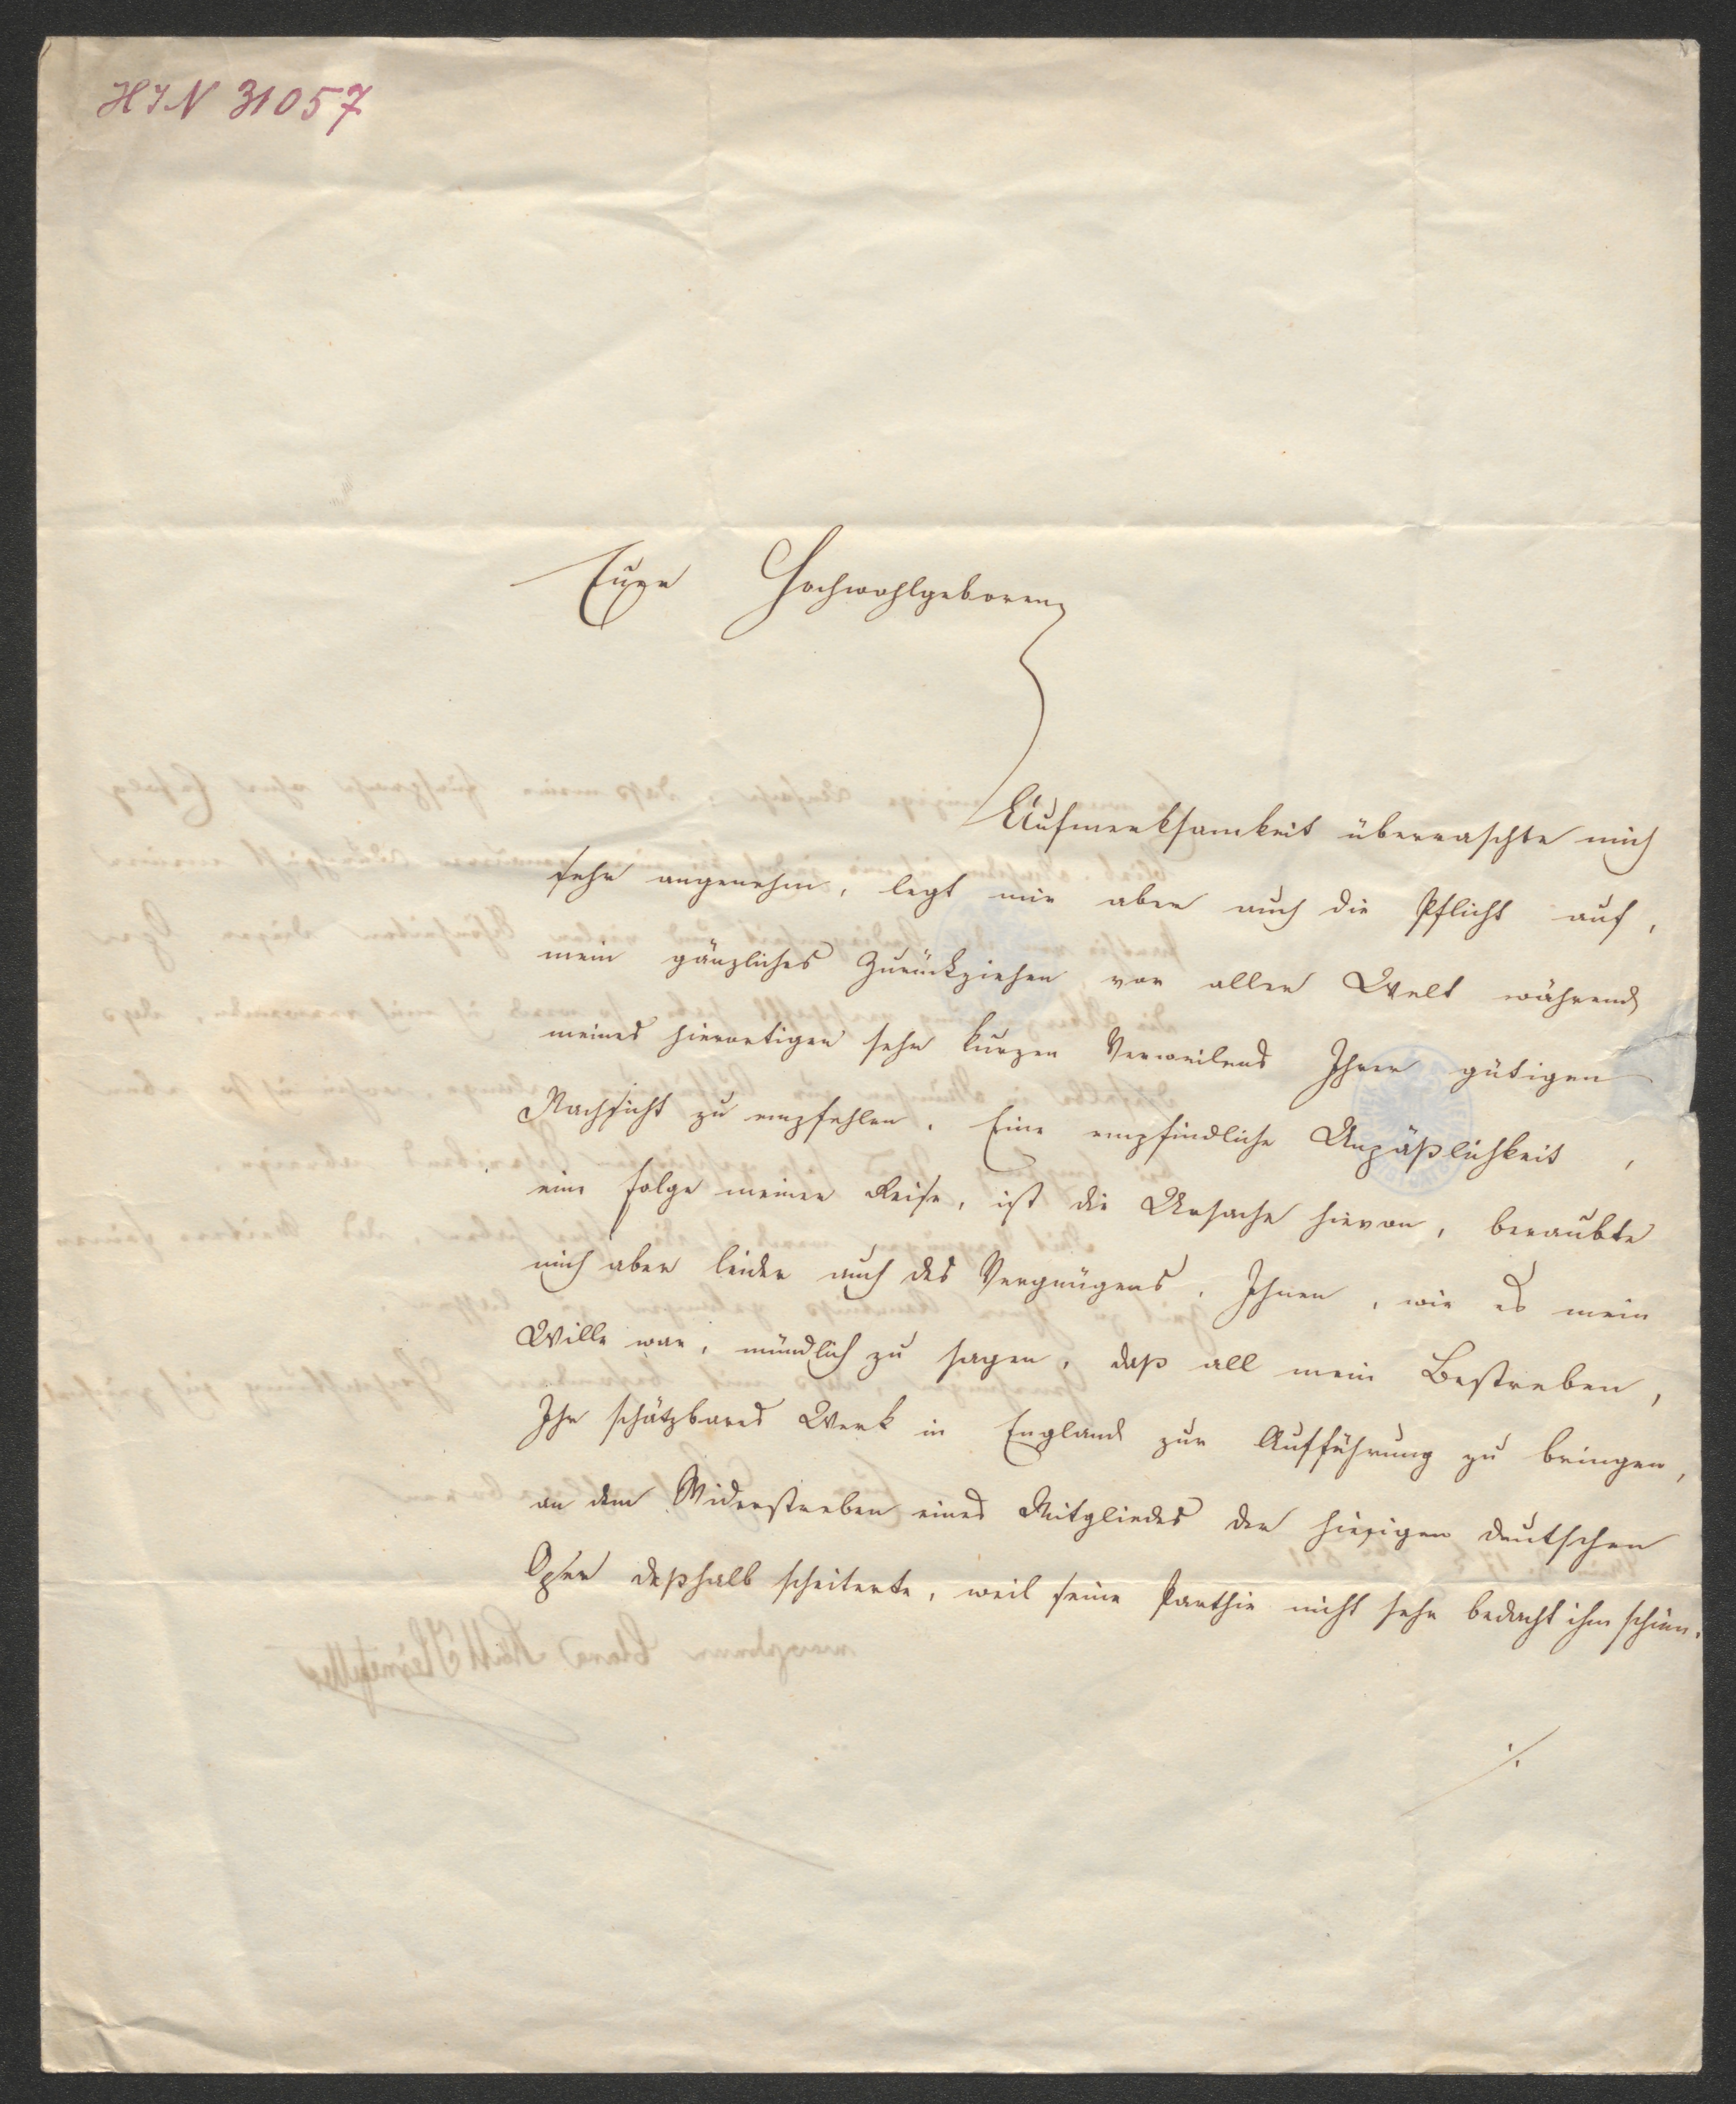 HIN 31057
Euer Hochwohlgeboren
Aufmerksamkeit überraschte mich
sehr angenehm, legt mir aber auch die Pflicht auf,
mein gänzliches Zurückziehen von aller Welt während
meines hierortigen sehr kurzen Verweilens Ihrer gütigen
Nachsicht zu empfehlen. Eine empfindliche Unpäßlichkeit,
eine Folge meiner Reise, ist die Ursache hievon, beraubte
mich aber leider auch des Vergnügens, Ihnen, wie es mein
Wille war, mündlich zu sagen, daß all mein Bestreben,
Ihr schätzbares Werk in England zur Aufführung zu bringen,
an dem Widerstreben eines Mitgliedes der hiesigen deutschen
Oper deßhalb scheiterte, weil seine Parthie nicht sehr bedacht ihm schien.
./.